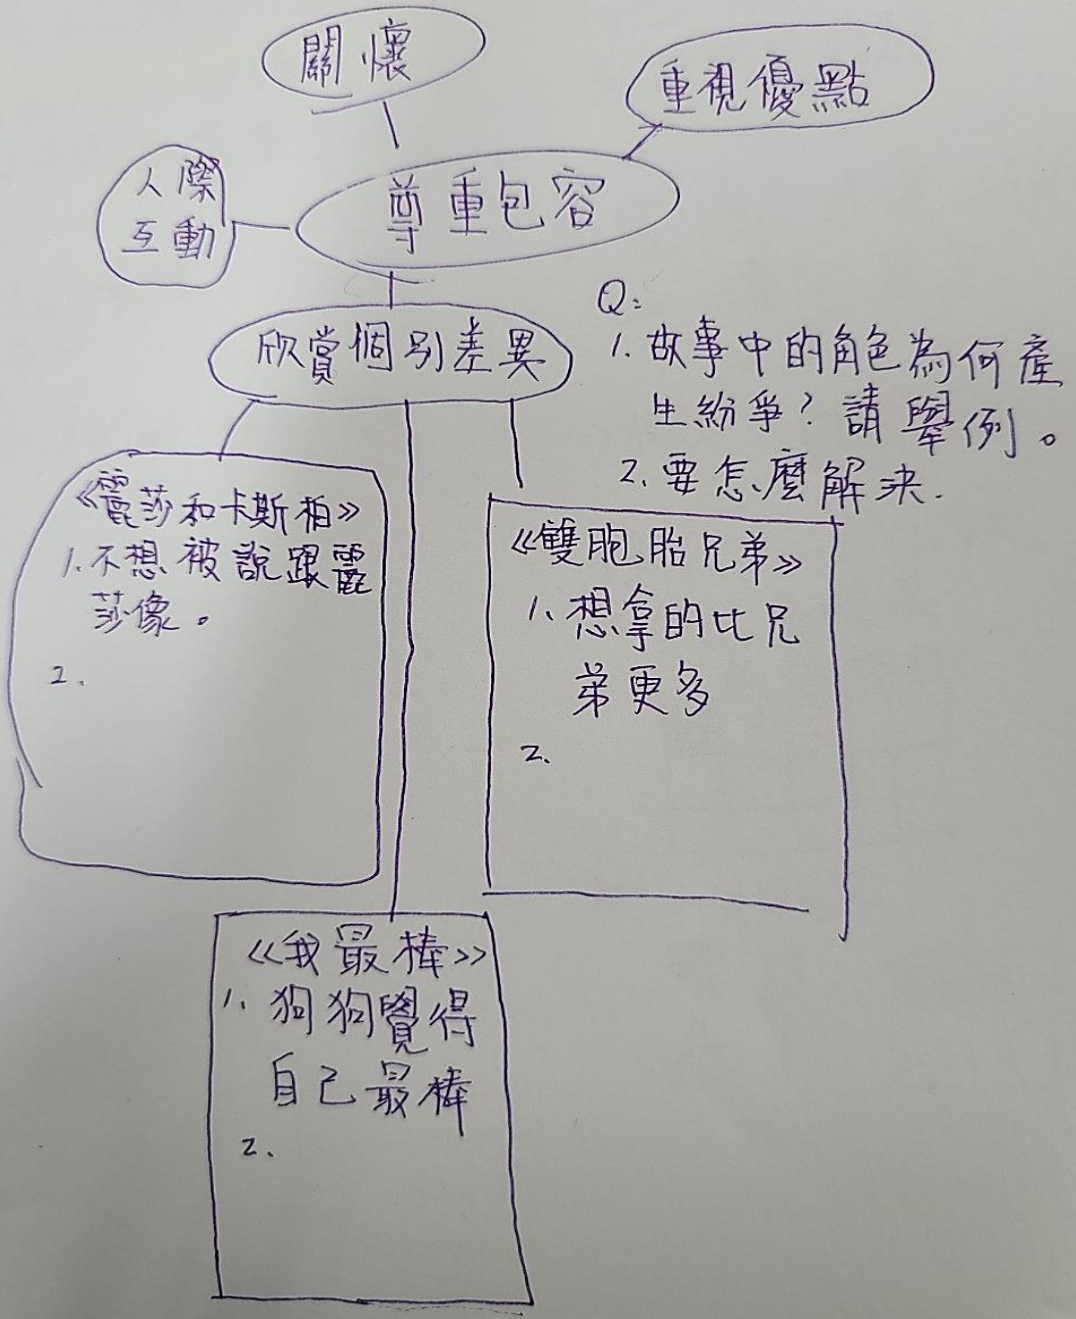 關懷
重視優點
人際
互動
尊重包容
欣賞個別差異
Q:
1. 故事中的角色為何產
生紛爭?請舉例。
2. 要怎麼解決.
《麗莎和卡斯柏》
1. 不想被說跟麗
莎像。
2.
《雙胞胎兄弟》
1. 想拿的比兄
弟更多
2.
《我最棒》
1. 狗狗覺得
自己最棒
2.